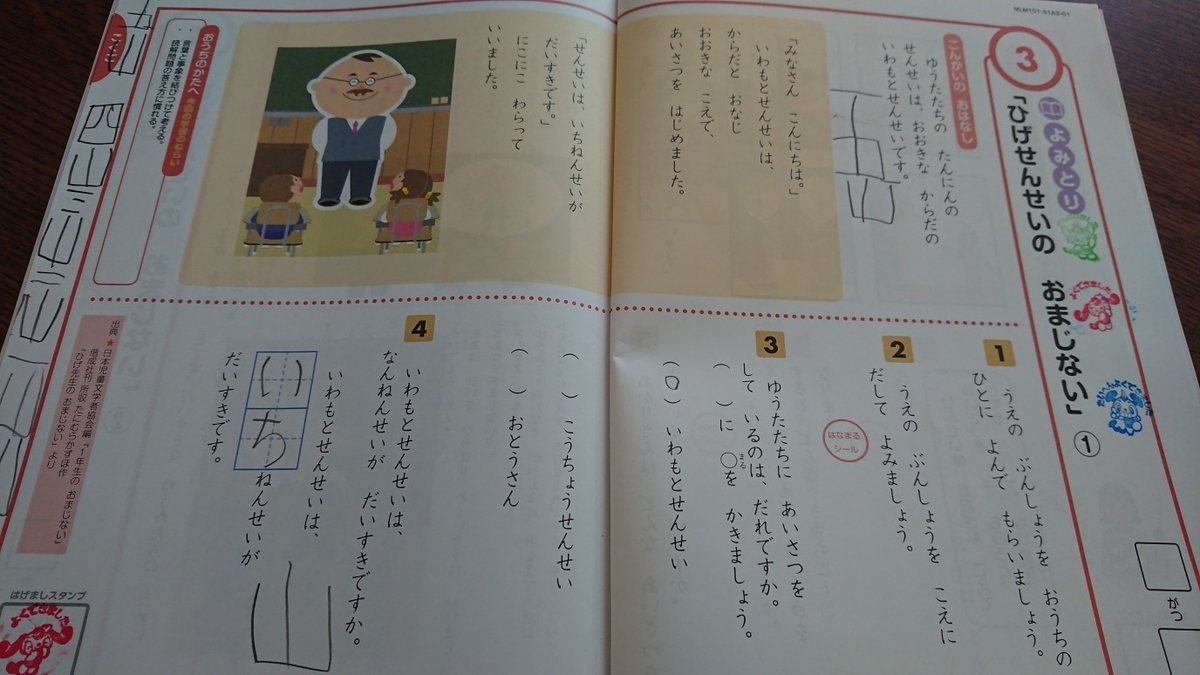 MLM101-S1A3-01
3
国語 よみとり
「ひげせんせいの おまじない」①
がつ
こんかいの おはなし
ゆうたたちの たんにんの
せんせいは、おおきな からだの
いわもとせんせいです。
五山
「みなさん こんにちは。」
いわもとせんせいは、
からだと おなじ
おおきな こえで、
あいさつを はじめました。
「せんせいは、いちねんせいが
だいすきです。」
にこにこ わらって
いいました。
おうちのかたへ 今回の学習のねらい
・言葉と事象を結びつけて考える。
・読解問題の答え方に慣れる。
こくご
1
うえの ぶんしょうを おうちの
ひとに よんで もらいましょう。
2
うえの ぶんしょうを こえに
だして よみましょう。
はなまる
シール
3
ゆうたたちに あいさつを
して いるのは、だれですか。
( )に ○を かきましょう。
まる
(○) いわもとせんせい
( ) こうちょうせんせい
( ) おとうさん
4
いわもとせんせいは、
なんねんせいが だいすきですか。
いわもとせんせいは、
いちねんせいが
だいすきです。
山
出典 ★日本児童文学者協会編「1年生の おまじない」
偕成社刊 所収 たにむらかずほ作
「ひげ先生の おまじない」より
はげましスタンプ
四山